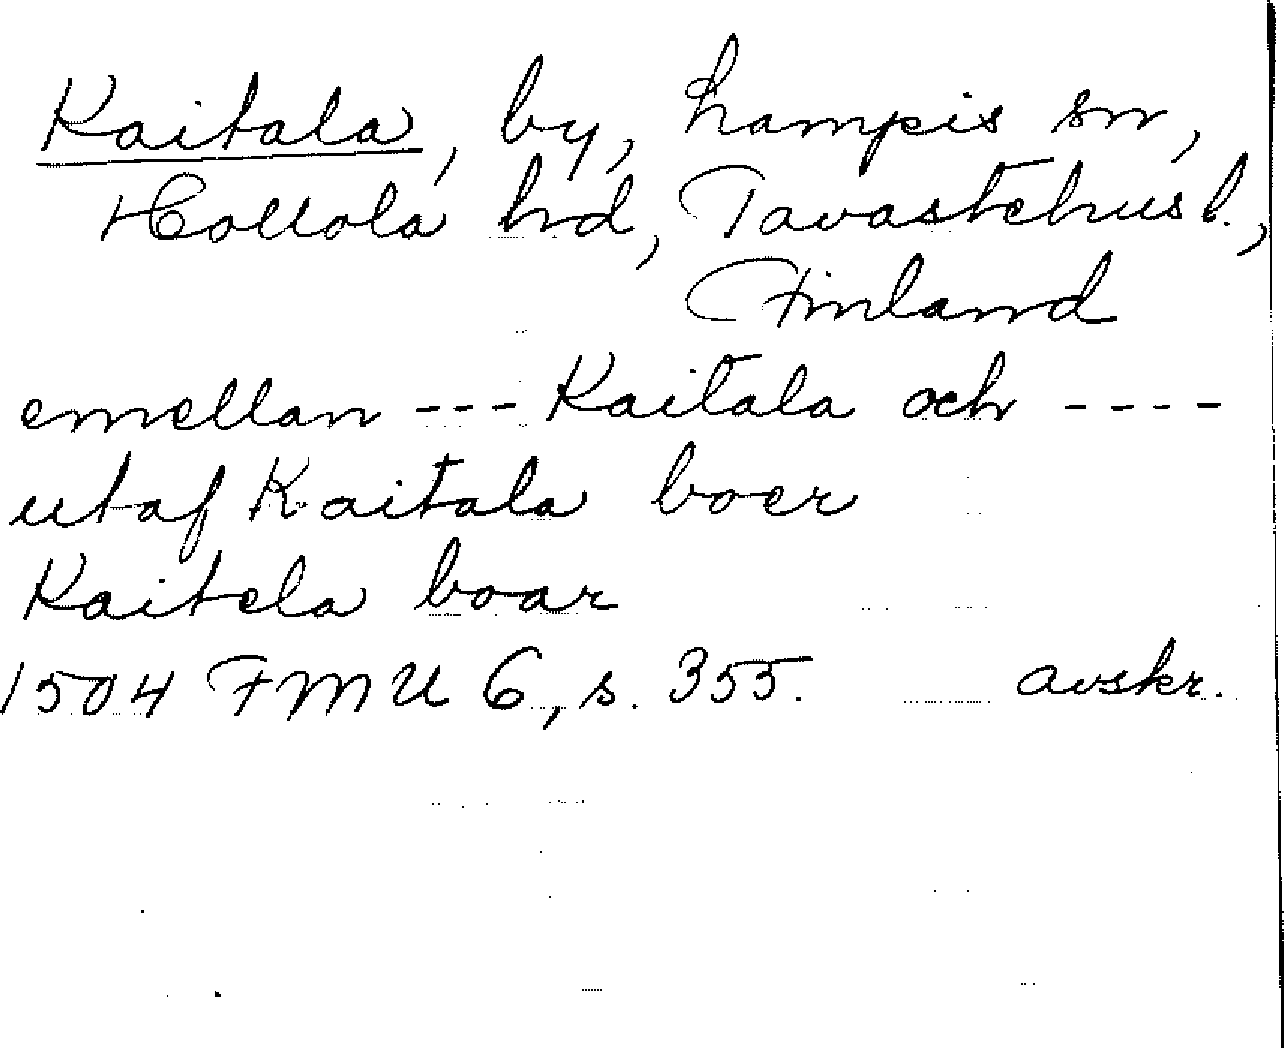 Kaitala, by, Lampis sn,
Hollola hd, Tavastehus l.,
Finland
emellan --- Kaitala och ----
utaf Kaitala boer
Kaitela boar
1504 FMU 6, s. 355. avskr.